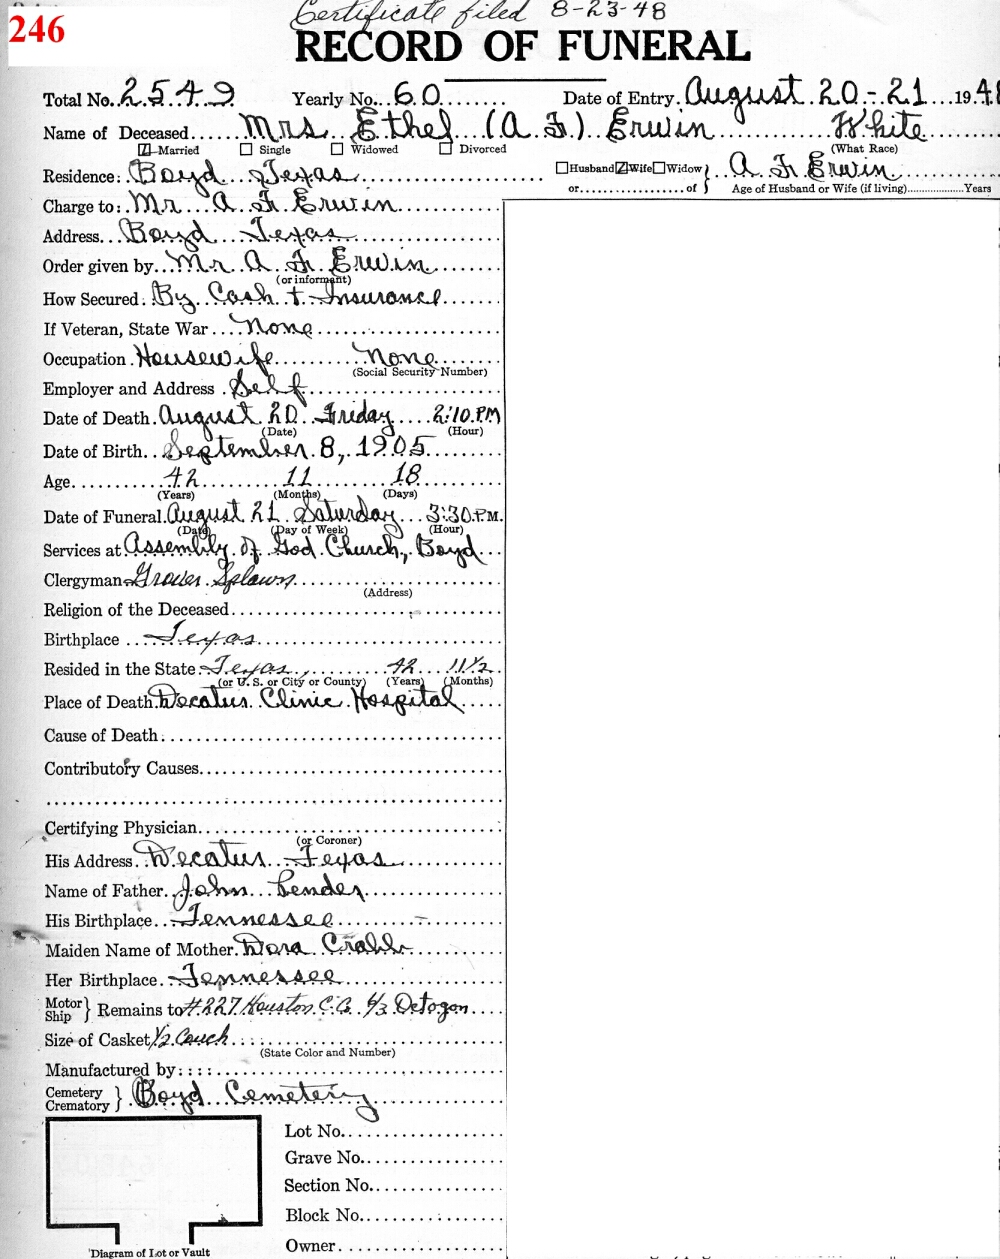 Certificate filed 8-23-48
246
RECORD OF FUNERAL
Total No. 2549 Yearly No. 60 Date of Entry. August 20-21 194
Name of Deceased Mrs Ethel (A F.) Erwin White
Married Single Widowed Divorced (What Race)
Residence: Boyd Texas Husband Wife Widow } A F Erwin
or of Age of Husband or Wife (if living) Years
Charge to: Mr A F Erwin
Address Boyd Texas
Order given by Mr A F Erwin
(or informant)
How Secured. By Cash + Insurance
If Veteran, State War None
Occupation Housewife None
(Social Security Number)
Employer and Address Self
Date of Death. August 20 Friday 2:10 PM
(Date) (Hour)
Date of Birth September 8, 1905
Age 42 11 18
(Years) (Months) (Days)
Date of Funeral. August 21 Saturday 3:30 P.M.
(Date) (Day of Week) (Hour)
Services at Assembly of God Church, Boyd
Clergyman Grover Splawn
(Address)
Religion of the Deceased
Birthplace Texas
Resided in the State Texas 42 11½
(or U. S. or City or County) (Years) (Months)
Place of Death. Decatur Clinic Hospital
Cause of Death
Contributory Causes
Certifying Physician
(or Coroner)
His Address Decatur Texas
Name of Father John
His Birthplace Tennessee
Maiden Name of Mother. Dora Crabb
Her Birthplace Tennessee
Motor Ship } Remains to #227 Houston C.C. 6/3 Octogon
Size of Casket ½ Couch
(State Color and Number)
Manufactured by
Cemetery Crematory } Boyd Cemetery
Lot No.
Grave No.
Section No.
Block No.
Owner
Diagram of Lot or Vault